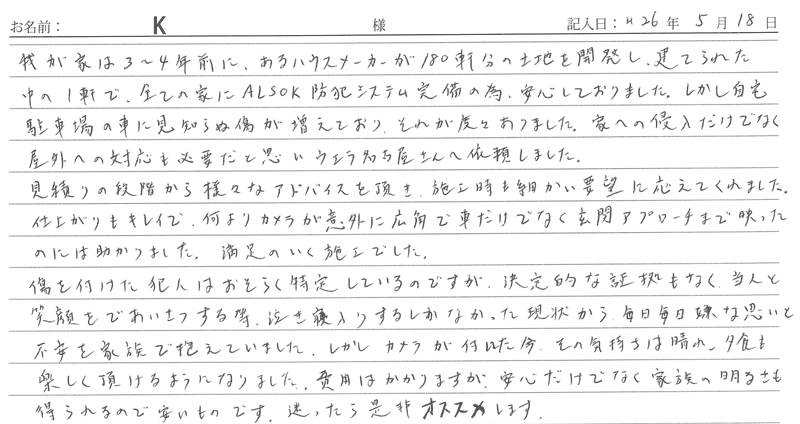 お名前： K 様 記入日：H26年 5月18日
我が家は3～4年前に、あるハウスメーカーが180軒分の土地を開発し、建てられた
中の1軒で、全ての家にALSOK防犯システム完備の為、安心しておりました。しかし自宅
駐車場の車に見知らぬ傷が増えており、それが度々ありました。家への侵入だけでなく
屋外への対応も必要だと思いウエラ名古屋さんへ依頼しました。
見積りの段階から様々なアドバイスを頂き、施工時も細かい要望に応えてくれました。
仕上がりもキレイで、何よりカメラが意外に広角で車だけでなく玄関アプローチまで映った
のには助かりました。満足のいく施工でした。
傷を付けた犯人はおそらく特定しているのですが、決定的な証拠もなく、当人と
笑顔であいさつする等、泣き寝入りするしかなかった現状から、毎日毎日嫌な思いと
不安を家族で抱えていました。しかしカメラが付いた今、その気持ちは晴れ、夕食も
楽しく頂けるようになりました。費用はかかりますが、安心だけでなく家族の明るさも
得られるので安いものです。迷ったら是非オススメします。